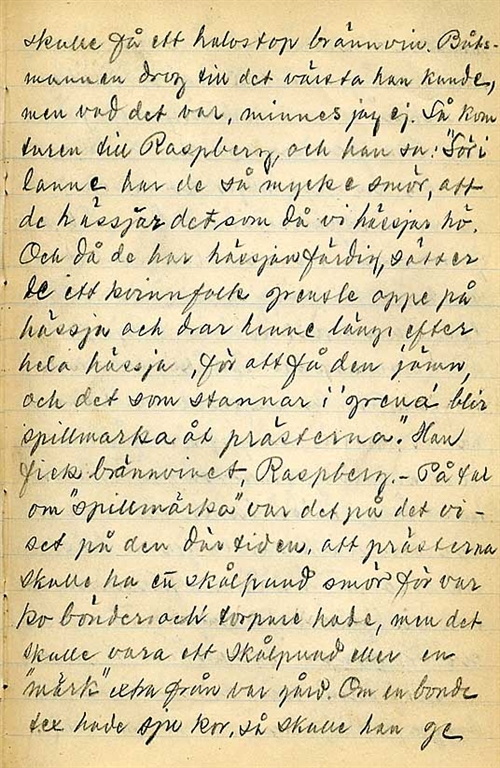 skulle få ett halvstop brännvin. Båts-
mannen drog till det värsta han kunde,
men vad det var, minnes jag ej. Så kom
turen till Raspberg, och han sa: "Sör i
lanne har de så mycke smör, att
de hässjar det som då vi hässjar hö.
Och då de har hässjan färdig, sätter
de ett kvinnfolk grensle oppe på
hässja och drar henne längs efter
hela hässja, för att få den jämn,
och det som stannar i 'grena' blir
spillmarka åt prästerna." Han
fick brännvinet, Raspberg. - På tal
om "spillmärka" var det på det vi-
set på den där tiden, att prästerna
skulle ha en̄ skålpund smör för var
ko bönder och torpare hade, men det
skulle vara ett skålpund eller en
"märk" extra från var gård. Om en bonde
tex hade sju kor, så skulle han ge